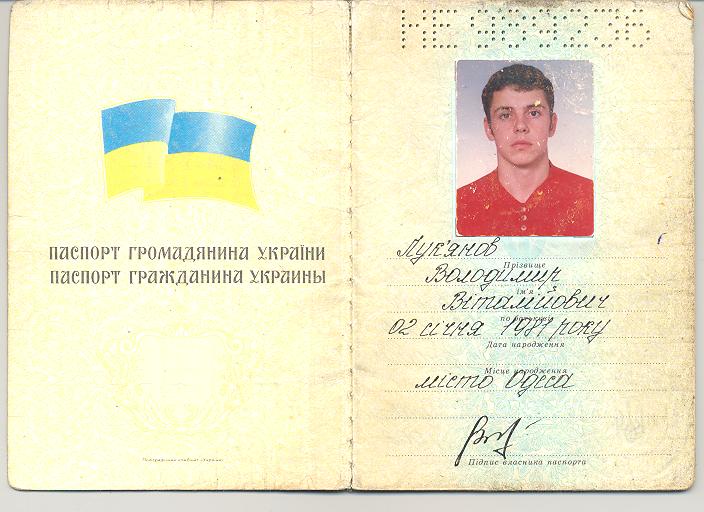 ПАСПОРТ ГРОМАДЯНИНА УКРАЇНИ
ПАСПОРТ ГРАЖДАНИНА УКРАИНЫ
НЕ
Лук'янов
Прізвище
Володимир
ім'я
Віталійович
по батькові
02 січня 1981 року
Дата народження
Місце народження
місто Одеса
Підпис власника паспорта